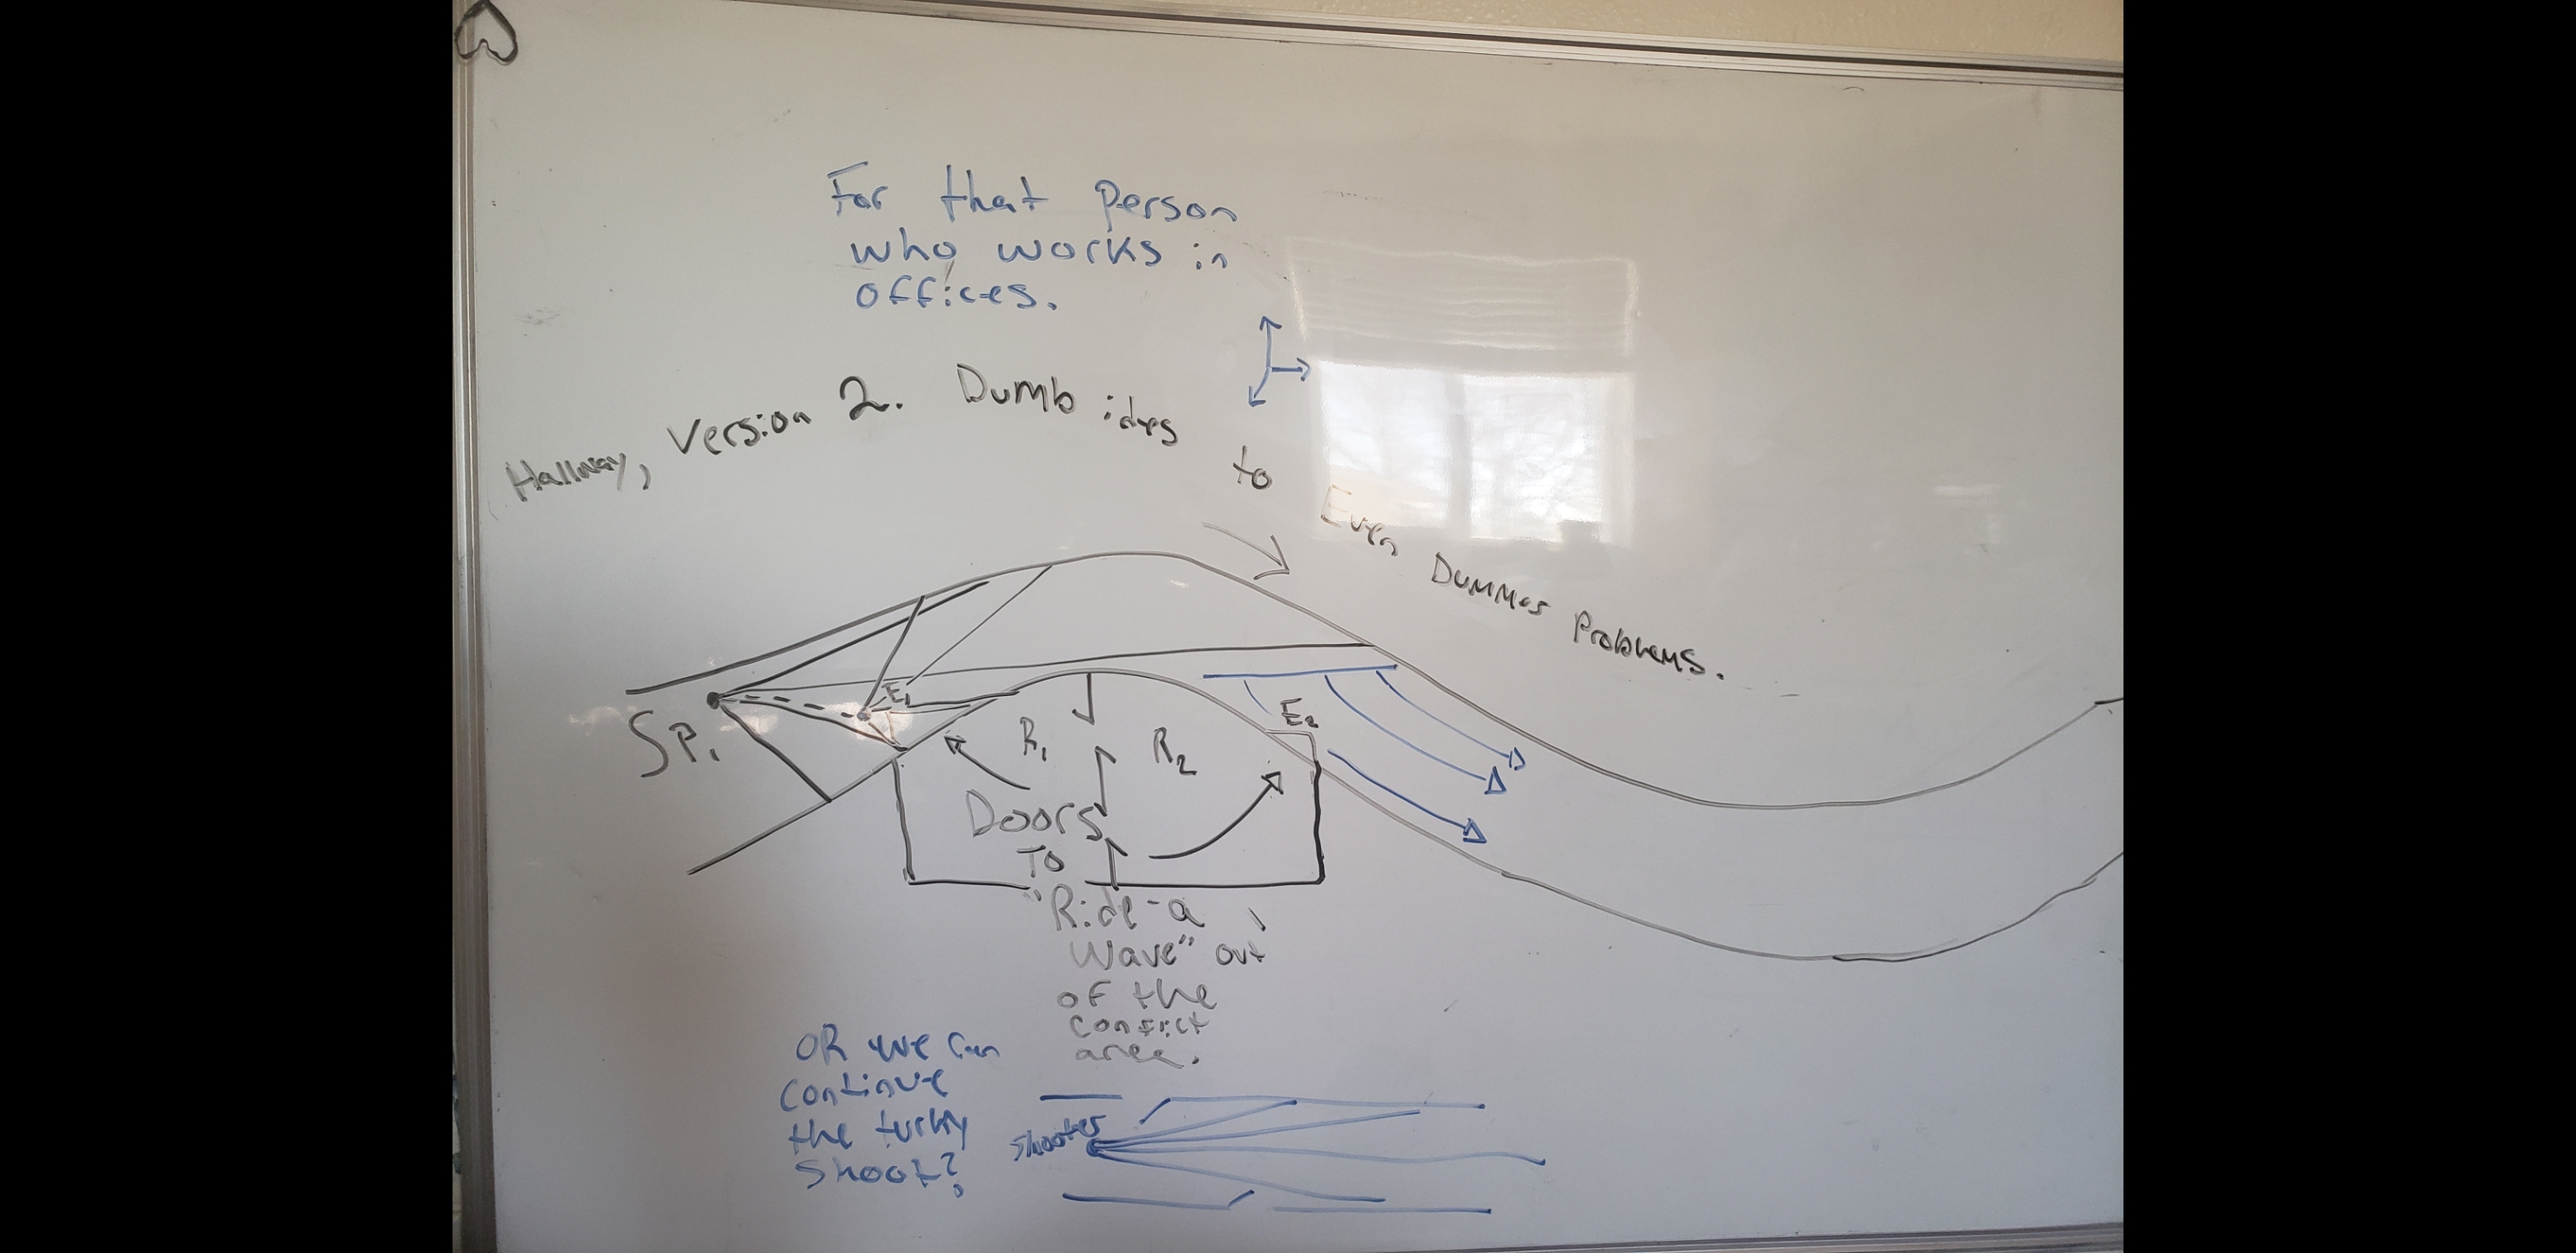 For that person
who works in
offices.
Hallway, Version 2. Dumb ides to Even Dummer Problems.
SP₁
E₁
E₂
R₁
R₂
Doors
To
"Ride-a
Wave" out
of the
Confict
area.
OR we can
continue
the turky
shoot?
Shooter